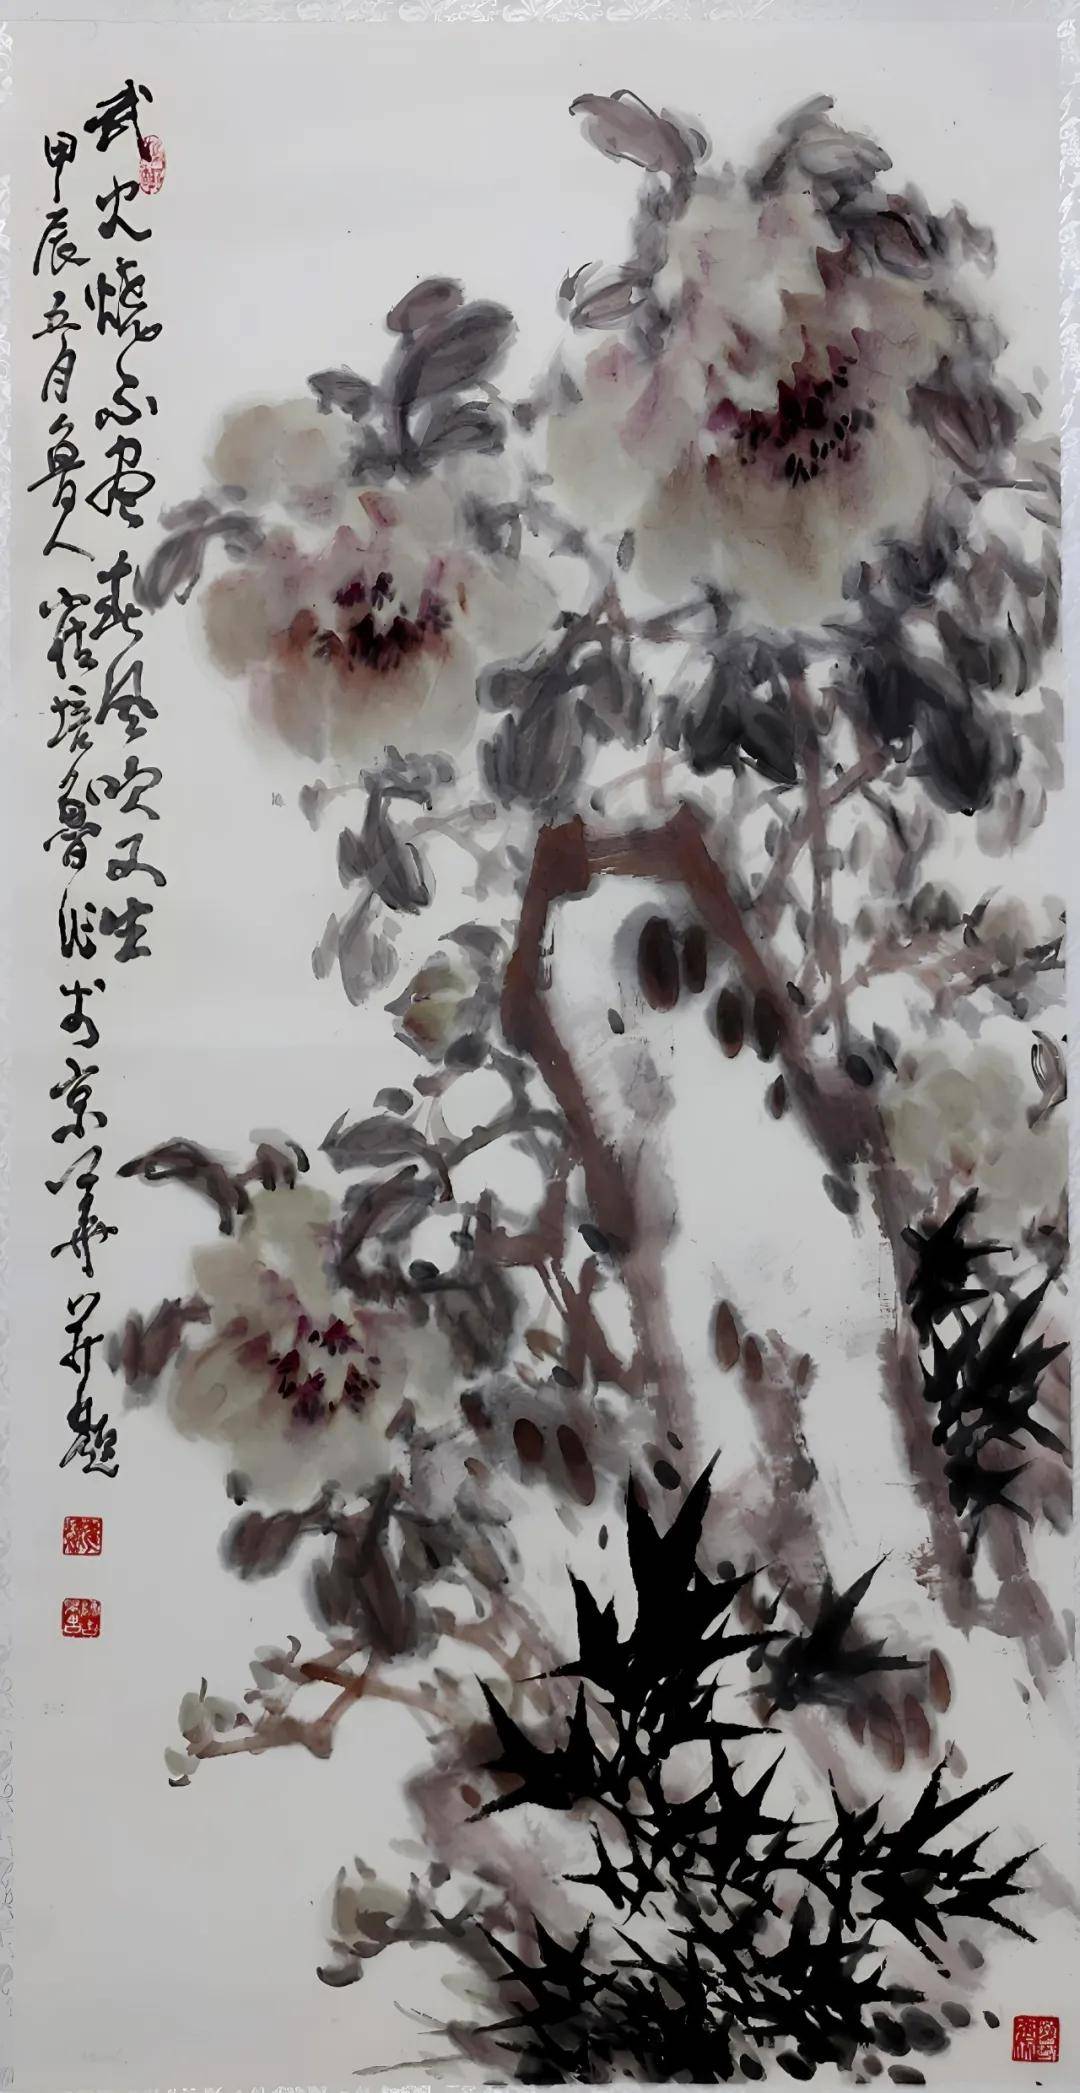 武火烧不尽春风吹又生
甲辰五月鲁人崔培鲁作于京华并题